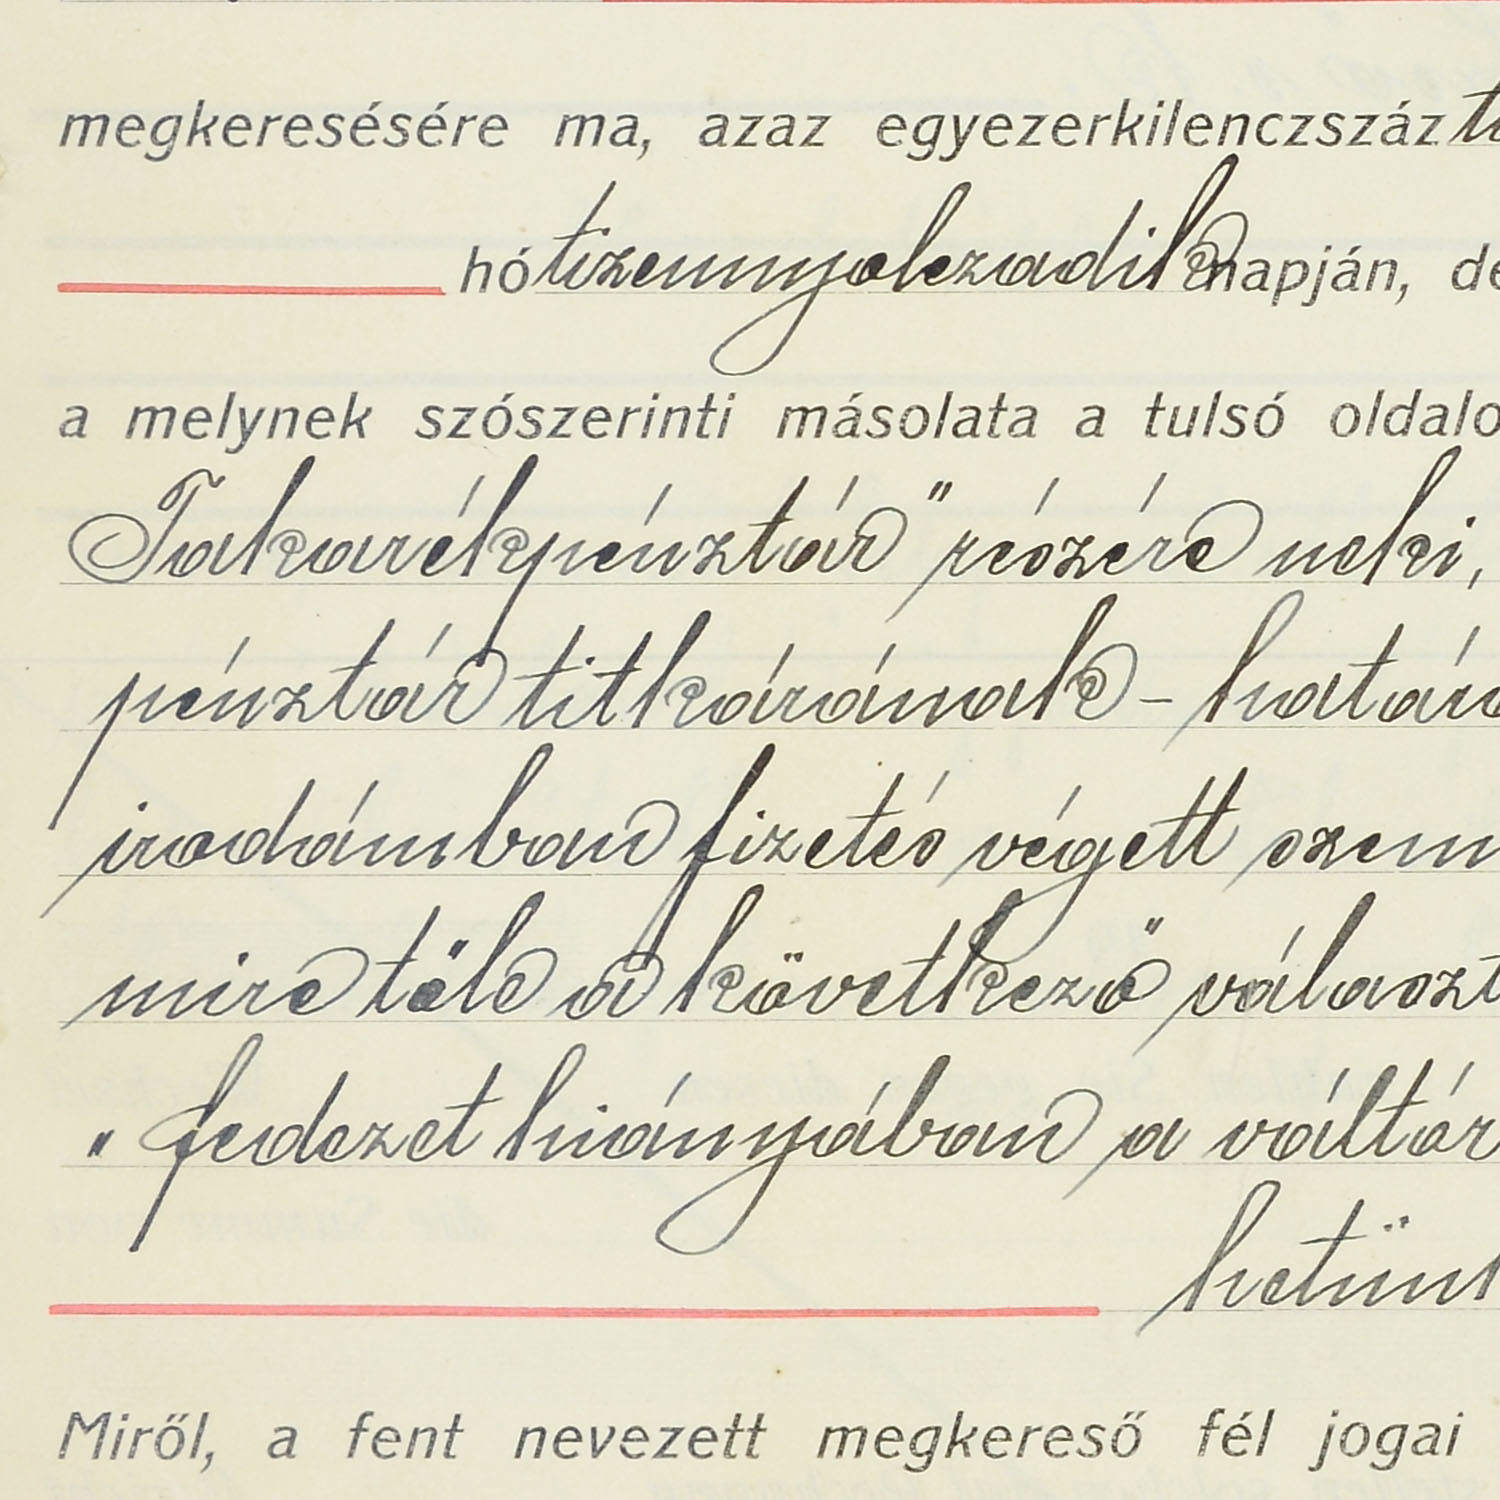 megkeresésére ma, azaz egyezerkilenczszáz
hó tizennyolczadik napján, de
a melynek szószerinti másolata a tulsó oldalo
Takarékpénztár" részére neki,
pénztár titkárának - határo
irodámban fizetés végett szem
mire tőle a következő választ
"fedezet hiányában a váltár
hetünk
Miről, a fent nevezett megkereső fél jogai